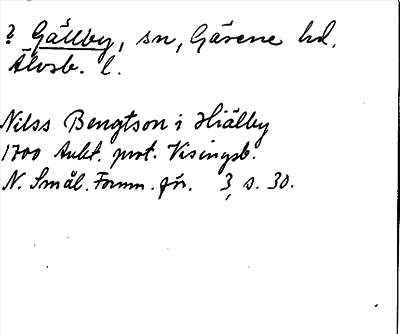 ? Gällby, sn, Gäsene hd.
Älvsb. l.
Nilss Bengtson i Hiälby
1700 Aukt. prot. Visingsb.
N. Smål. Fornm. för. 3, s. 30.